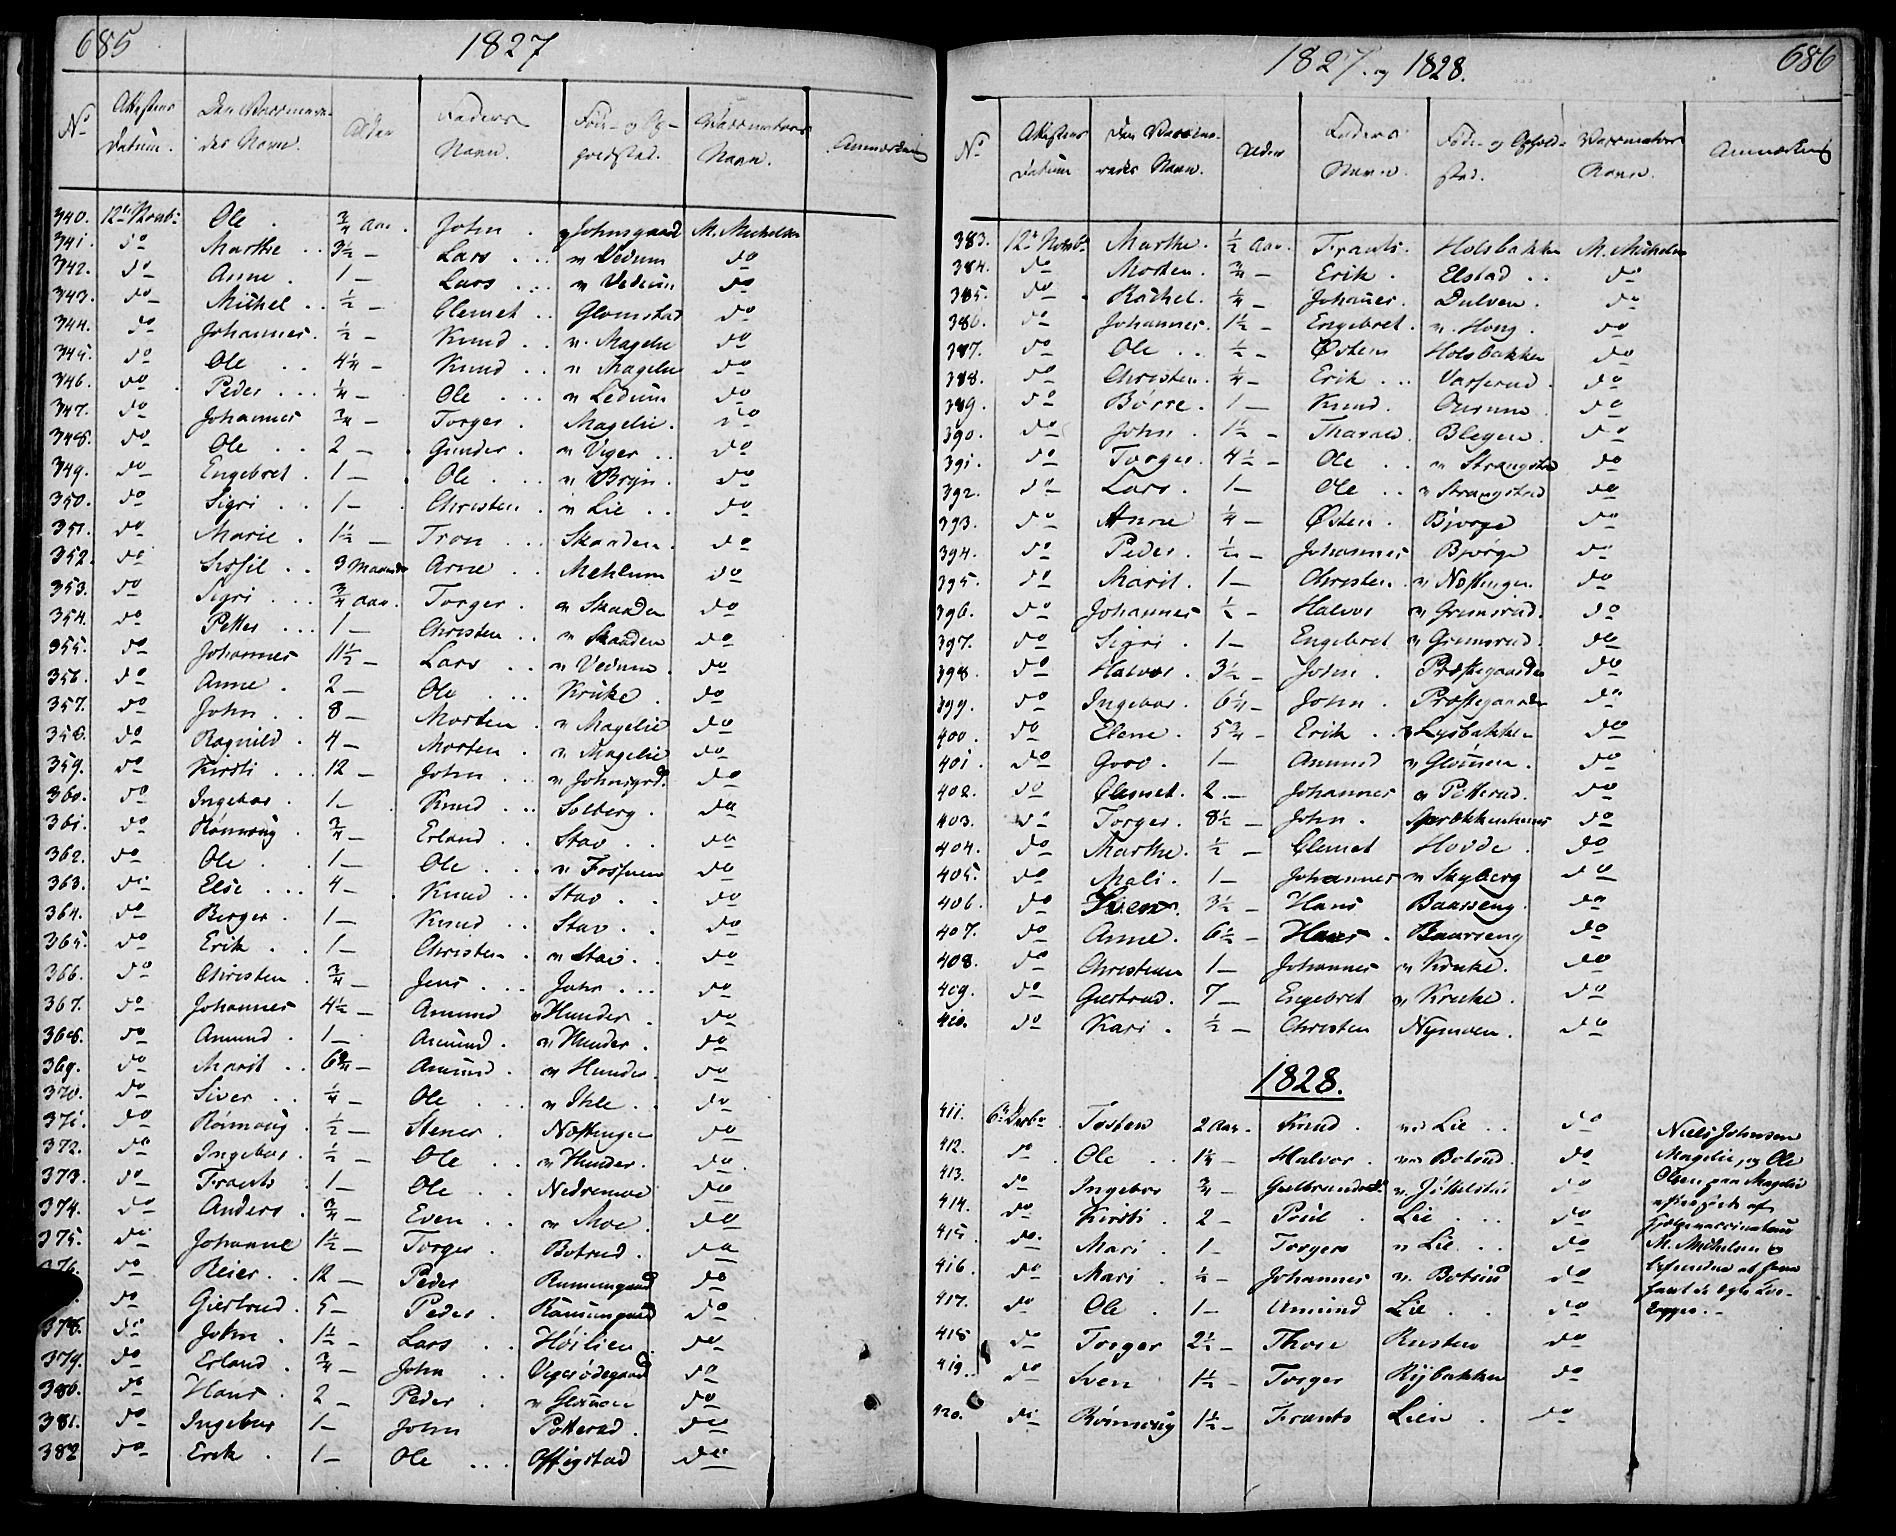 685
1827
No Attestens Datum. Den Vaccinerendes Navn. Alder Faders Navn. Føde- og Opholdsted. Vaccinateurs Navn. Anmærkning
340. 12te Novbr Ole . 3/4 Aar . John . n Johnsgaard M. Michelsen
341. do Marthe . . 3 1/2 — Lars . . . n Vedum do
342. do Anne . 1 — Lars . . . n Vedum do
343. do Michel . . 1/2 — Clemet . . Glomstad do
344. do Johannes . 1/2 — Knud . . n. Magelie do
345. do Ole . . 4 1/4 — Knud . . n Magelie do
346. do Peder . . . 1/4 — Ole . . . n Ledum do
347. do Johannes 3/4 — Torger . Magelie . do
348. do Ole . . 2 — Gunder . n Viger . . do
349. do Engebret . 1 — Ole . . . n Bryn . do
350. do Sigri . . 1 — Christen . n Lie . . do
351. do Marie . 1 1/2 — Tron . . . Skaaden . do
352. do Sissil . . 3 Maaneder Arne . . Mehlum do
353. do Sigri . . . 3/4 Aar . Torger . n Skaaden do
354. do Petter . . . 1 — Christen . . n Skaaden do
355. do Johannes 11 1/2 — Lars . . . n Vedum . do
356. do Anne . 2 — Ole . . . Kruke . do
357. do John . . 8 — Morten . n Magelie do
358. do Ragnild . 4 — Morten . n Magelie do
359. do Kirsti . . . 12 — John . . . n Johnsgrd. do
360. do Ingebor . 1 — Knud . . . Solberg . do
361. do Rønnoug 3/4 — Erland . . Stav . . do
362. do Ole . . 1 — Ole . . . n Fossum do
363. do Else . . . 4 — Knud . . Stav . . do
364. do Berger . 1 — Knud . . Stav . . do
365. do Erik . . 1 — Christen . n Stav . . do
366. do Christen . 3/4 — Jens . . . Jahr . . . do
367. do Johannes 4 1/2 — Amund n Hunder . do
368. do Amund . 1 — Amund . n Hunder . do
369. do Marit . . 6 3/4 — Amund . n Hunder . do
370. do Siver . . 1/4 — Ole . . n Ihle . . do
371. do Rønnoug 1/2 — Stener . Nøstingen do
372. do Ingebor . 1/2 — Ole . . n Hunder . do
373. do Frants . 1 — Ole . . Nedremoe do
374. do Anders . 3/4 — Even . . n Moe . do
375. do Johanne 1 1/2 — Torger . Botrud . do
376. do Reier . . 12 — Peder do
do Giertrud . 5 — Peder . do
378. do John . 1 1/2 — Lars . . Høilien . do
379. do Erland . 3/4 — John . . Vigerødegaard do
380. do Hans . 2 — Peder . n Glømmen do
381. do Ingebor 1 — John Potterud . do
382 do Erik . 1 — Ole . . . Offigstad do
1827. og 1828.
686
No Attestens Datum Den Vaccinerendes Navn. Alder Faders Navn. Føde- og Opholdsted. Vaccinateurs Navn. Anmærkning
383. 12te Novbr Marthe . 1/2 Aar . Frants . Holsbakken M. Michelsen
384. do Morten . 3/4 — Erik . Elstad . . do
385. do Rachel . 1/4 — Johanes . Dulven . do
386. do Johannes . 1 1/2 — Engebret . n. Hong . do
387. do Ole . . 1/2 — Østen Holsbakken do
388. do Christen . 1/4 — Erik . . . Varserud . do
389. do Børre . 1 — Knud . do
390. do John . 1 1/2 — Tharald . Blegen . do
391. do Torger . 4 1/2 — Ole . . n Strangstad do
392. do Lars . 1 — Ole . . n Strangstad do
393. do Anne 1/4 — Østen . Bjorge do
394. do Peder . 1/2 — Johannes Bjørge do
395. do Marit . 1 — Christen . n Nøstingen do
396. do Johannes 1/2 — Halvor n Grimsrud . do
397. do Sigri . 1 — Engebret n Grimsrud . do
398. do Halvor . 3 1/2 — John . Præstegaarden do
399. do Ingebor . 6 1/4 — John . Præstegaarden do
400. do Elene . 5 3/4 — Erik . . n Lysbakken do
401. do Goro . 1 — Amund n Glømmen . do
402. do Clemet . 2 — Johannes n Potterud . do
403. do Torger . 8 1/2 — John . do
404. do Marthe . 1/2 — Clemet Hovde . do
405. do Mali . 1 — Johannes n Skyberg do
406. do Sven . 3 1/2 — Hans Baarseng . do
407. do Anne . 6 1/2 — Hans . Baarseng do
408. do Christian 1 — Johannes n Kruke . do
409. do Giertrud . 7 — Engebret n Kruke . do
410. do Kari . 1/2 — Christen Nymoen . do
1828.
411. 6te Tosten 2 Aar . Knud . ved Lie . . do Niels Johnsen
412. do Ole . . 1 1/4 — Halvor . n Botrud . do Magelie, og Ole
413. do Ingebor 3/4 — Gulbrand n. do Olsen paa Magelie
414. do Kirsti . 2 — Poul . Lie . . . do af
415 do Mari . 1 — Torger n Lie . . . do
416. do Mari . 1/2 — Johannes n. Botrud do M. Michelsen
417. do Ole . 1 — Amund Lie . . do
418 do Torger 2 1/2 — Thore Rusten do
419. do Sven 1 1/2 — Torger Rÿbakken do
420. do Rønnoug 1 1/2 — Frants Lien . do